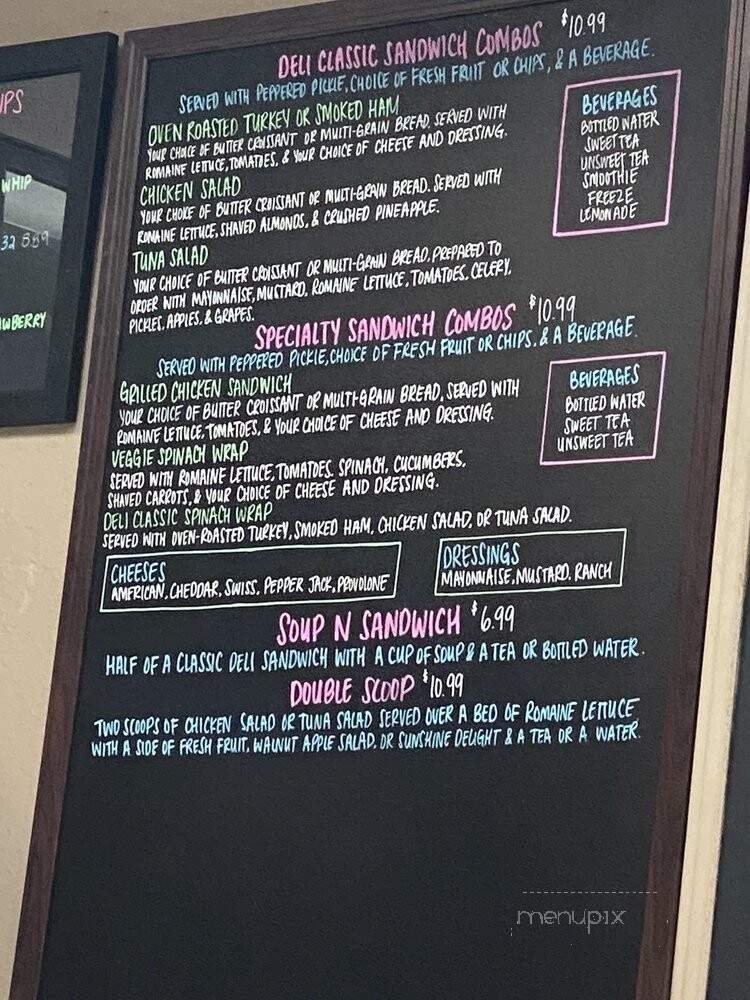 UPS
WHIP
32 5.59
WBERRY
DELI CLASSIC SANDWICH COMBOS $10.99
SERVED WITH PEPPERED PICKLE, CHOICE OF FRESH FRUIT OR CHIPS, & A BEVERAGE.
OVEN ROASTED TURKEY OR SMOKED HAM
YOUR CHOICE OF BUTTER CROISSANT OR MULTI-GRAIN BREAD, SERVED WITH
ROMAINE LETTUCE, TOMATOES, & YOUR CHOICE OF CHEESE AND DRESSING.
CHICKEN SALAD
YOUR CHOICE OF BUTTER CROISSANT OR MULTI-GRAIN BREAD. SERVED WITH
ROMAINE LETTUCE, SHAVED ALMONDS, & CRUSHED PINEAPPLE.
TUNA SALAD
YOUR CHOICE OF BUTTER CROISSANT OR MULTI-GRAIN BREAD, PREPARED TO
ORDER WITH MAYONNAISE, MUSTARD, ROMAINE LETTUCE, TOMATOES, CELERY,
PICKLES, APPLES, & GRAPES.
BEVERAGES
BOTTLED WATER
SWEET TEA
UNSWEET TEA
SMOOTHIE
FREEZE
LEMONADE
SPECIALTY SANDWICH COMBOS $10.99
SERVED WITH PEPPERED PICKLE, CHOICE OF FRESH FRUIT OR CHIPS, & A BEVERAGE.
GRILLED CHICKEN SANDWICH
YOUR CHOICE OF BUTTER CROISSANT OR MULTI-GRAIN BREAD, SERVED WITH
ROMAINE LETTUCE, TOMATOES, & YOUR CHOICE OF CHEESE AND DRESSING.
VEGGIE SPINACH WRAP
SERVED WITH ROMAINE LETTUCE, TOMATOES, SPINACH, CUCUMBERS,
SHAVED CARROTS, & YOUR CHOICE OF CHEESE AND DRESSING.
DELI CLASSIC SPINACH WRAP
SERVED WITH OVEN-ROASTED TURKEY, SMOKED HAM, CHICKEN SALAD, OR TUNA SALAD.
BEVERAGES
BOTTLED WATER
SWEET TEA
UNSWEET TEA
CHEESES
AMERICAN, CHEDDAR, SWISS, PEPPER JACK, PROVOLONE
DRESSINGS
MAYONNAISE, MUSTARD, RANCH
SOUP N SANDWICH $6.99
HALF OF A CLASSIC DELI SANDWICH WITH A CUP OF SOUP & A TEA OR BOTTLED WATER.
DOUBLE SCOOP $10.99
TWO SCOOPS OF CHICKEN SALAD OR TUNA SALAD SERVED OVER A BED OF ROMAINE LETTUCE
WITH A SIDE OF FRESH FRUIT, WALNUT APPLE SALAD, OR SUNSHINE DELIGHT & A TEA OR A WATER.
menupix